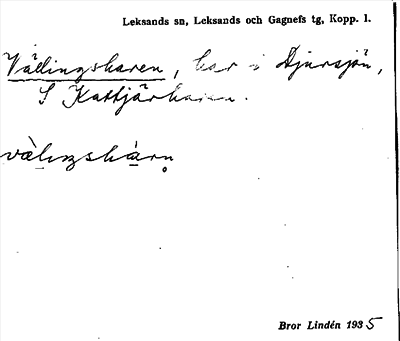 Leksands sn, Leksands och Gagnefs tg, Kopp. l.
Vällingskaren, kar i Djursjön,
S Kattjärkaren.
Bror Lindén 1935